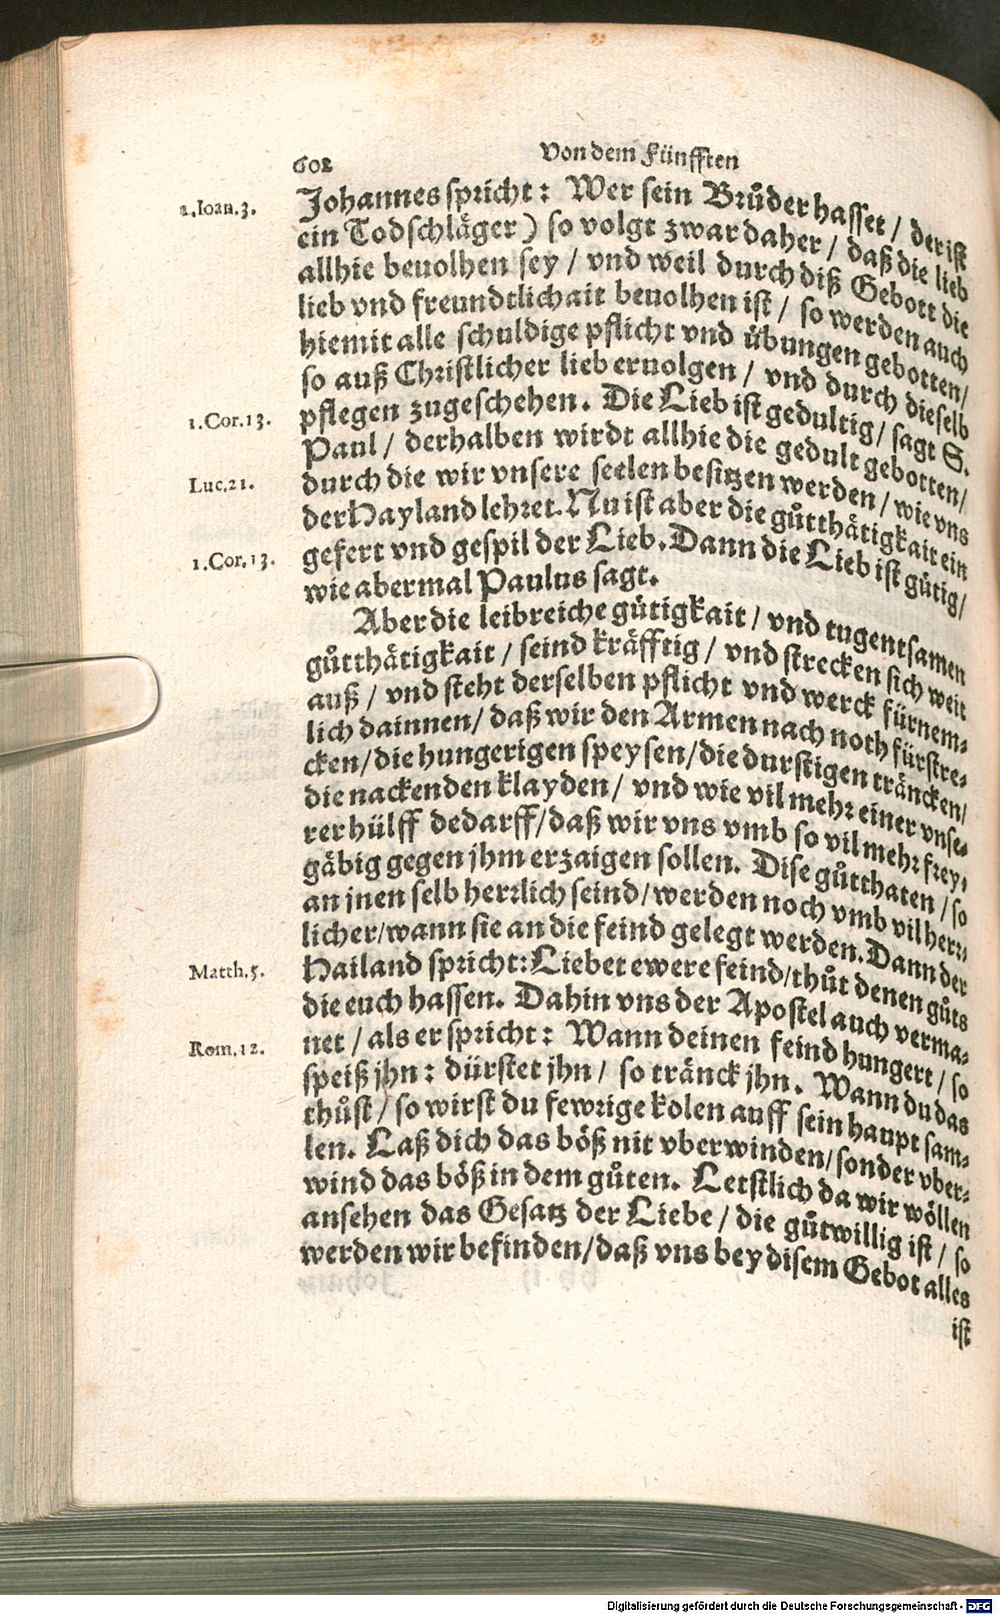 602
Von dem Fünfften
1.Ioan.3.
Johannes spricht: Wer sein Brůder hasset / der ist
ein Todschläger) so volgt zwar daher / daß die lieb
allhie beuolhen sey / vnd weil durch diß Gebott die
lieb vnd freundtlichait beuolhen ist / so werden auch
hiemit alle schuldige pflicht vnd übungen gebotten/
so auß Christlicher lieb eruolgen / vnd durch dieselb
1.Cor.13.
pflegen zugeschehen. Die Lieb ist gedultig / sagt S.
Paul / derhalben wirdt allhie die gedult gebotten/
Luc.21.
durch die wir vnsere seelen besitzen werden / wie vns
der Hayland lehret. Nu ist aber die gůtthätigkait ein
1.Cor.13.
gefert vnd gespil der Lieb. Dann die Lieb ist gütig/
wie abermal Paulus sagt.
Aber die leibreiche gütigkait / vnd tugentsamen
gůtthätigkait / seind kräfftig / vnd strecken sich weit
auß / vnd steht derselben pflicht vnd werck fürnem⸗
lich dainnen/ daß wir den Armen nach noth fürstre⸗
cken/die hungerigen speysen/die durstigen träncken/
die nackenden klayden / vnd wie vil mehr einer vnse⸗
rer hülff dedarff/daß wir vns vmb so vil mehr frey⸗
gäbig gegen jhm erzaigen sollen. Dise gůtthaten / so
an jnen selb herrlich seind/werden noch vmb vil herr⸗
licher/wann sie an die feind gelegt werden. Dann der
Matth.5.
Hailand spricht: Liebet ewere feind/thůt denen gůts
die euch hassen. Dahin vns der Apostel auch verma⸗
Rom.12.
net / als er spricht: Wann deinen feind hungert / so
speiß jhn: dürstet jhn / so tränck jhn. Wann du das
thůst / so wirst du fewrige kolen auff sein haupt sam⸗
len. Laß dich das böß nit vberwinden/sonder vber⸗
wind das böß in dem gůten. Letstlich da wir wöllen
ansehen das Gesatz der Liebe / die gůtwillig ist / so
werden wir befinden/daß vns bey disem Gebot alles
ist
Digitalisierung gefördert durch die Deutsche Forschungsgemeinschaft - DFG